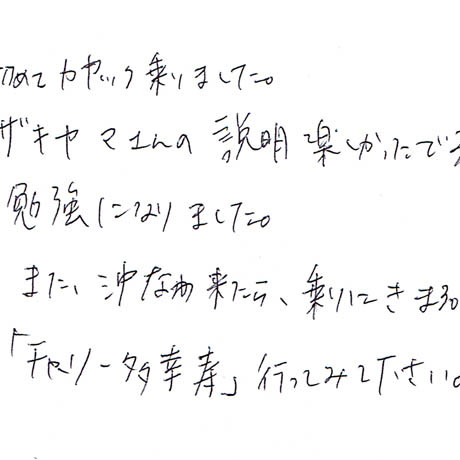 初めてカヤック乗りました。
ザキヤマさんの説明楽しかったです
勉強になりました。
また、沖なわ来たら、乗りにきまる
「チャーリー多幸寿」行ってみて下さい。